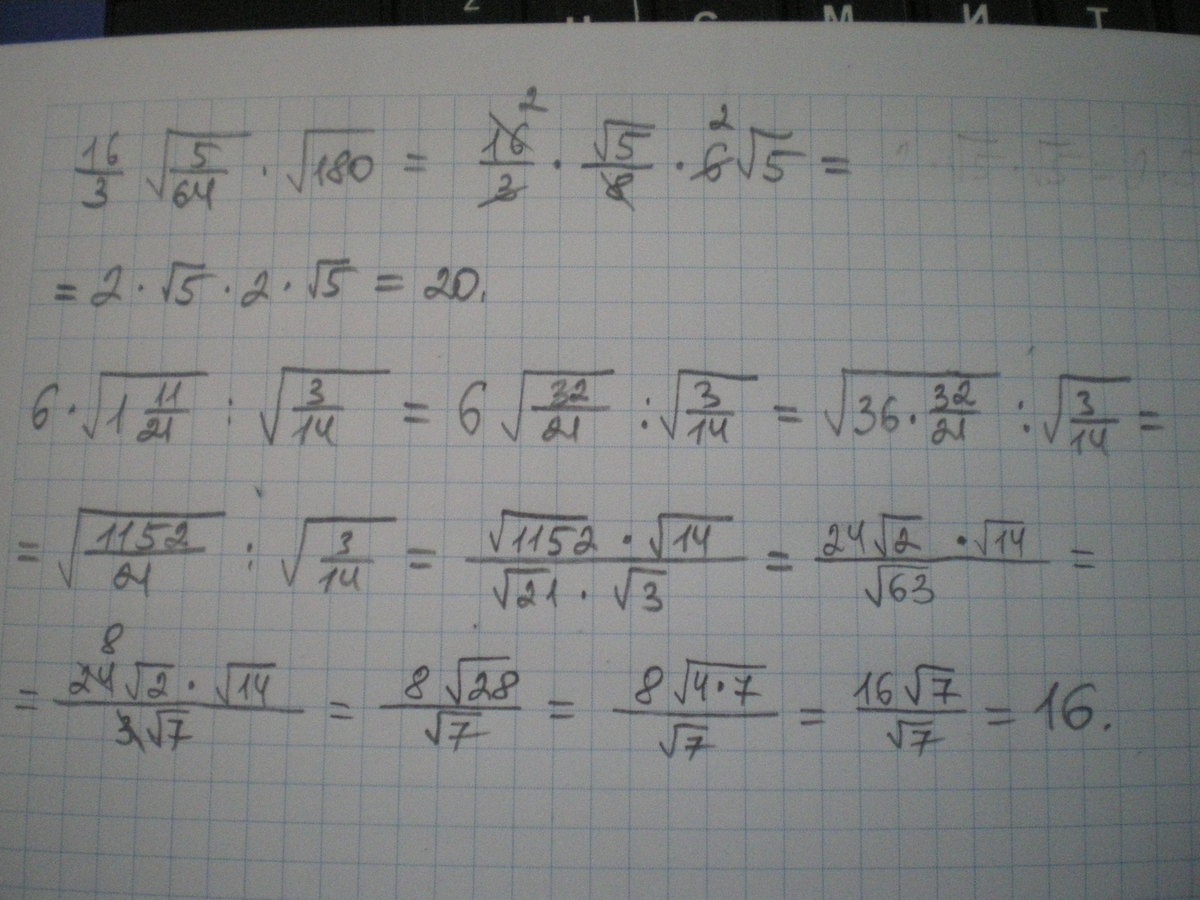 2 Ч С М И Т
16/3 √(5/64) · √180 = 16/3 2 · √5/8 · 6 2 √5 =
= 2 · √5 · 2 · √5 = 20.
6 · √(1 11/21) : √(3/14) = 6 √(32/21) : √(3/14) = √(36 · 32/21) : √(3/14) =
= √(1152/21) : √(3/14) = (√1152 · √14)/(√21 · √3) = (24√2 · √14)/√63 =
= (24 8 √2 · √14)/(3√7) = 8√28/√7 = 8√(4·7)/√7 = 16√7/√7 = 16.